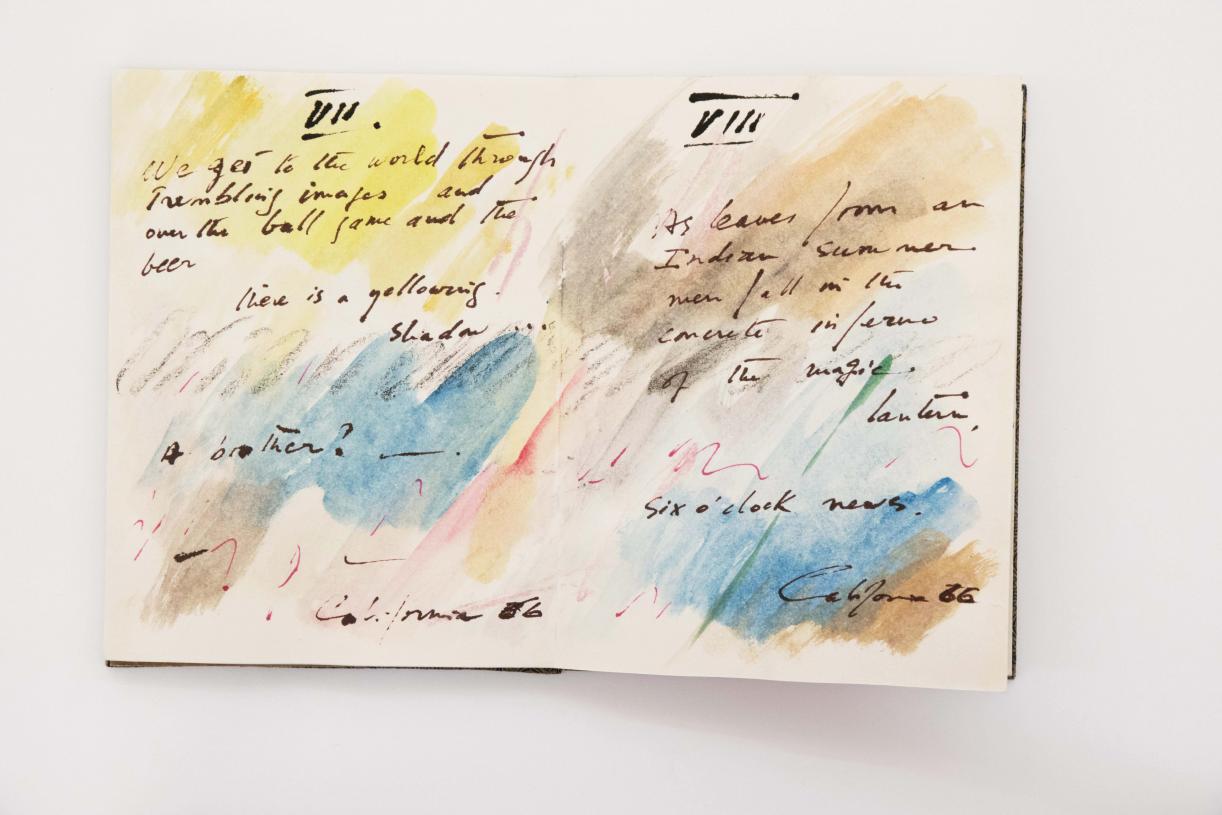 VII.
We get to the world through
Trembling images and
over the ball game and the
beer
there is a yellowing.
Shadow ...
A brother? —.
California 66
VIII
As leaves from an
Indian summer
men fall in the
concrete inferno
of the magic.
lantern,
Six o'clock news.
California 66